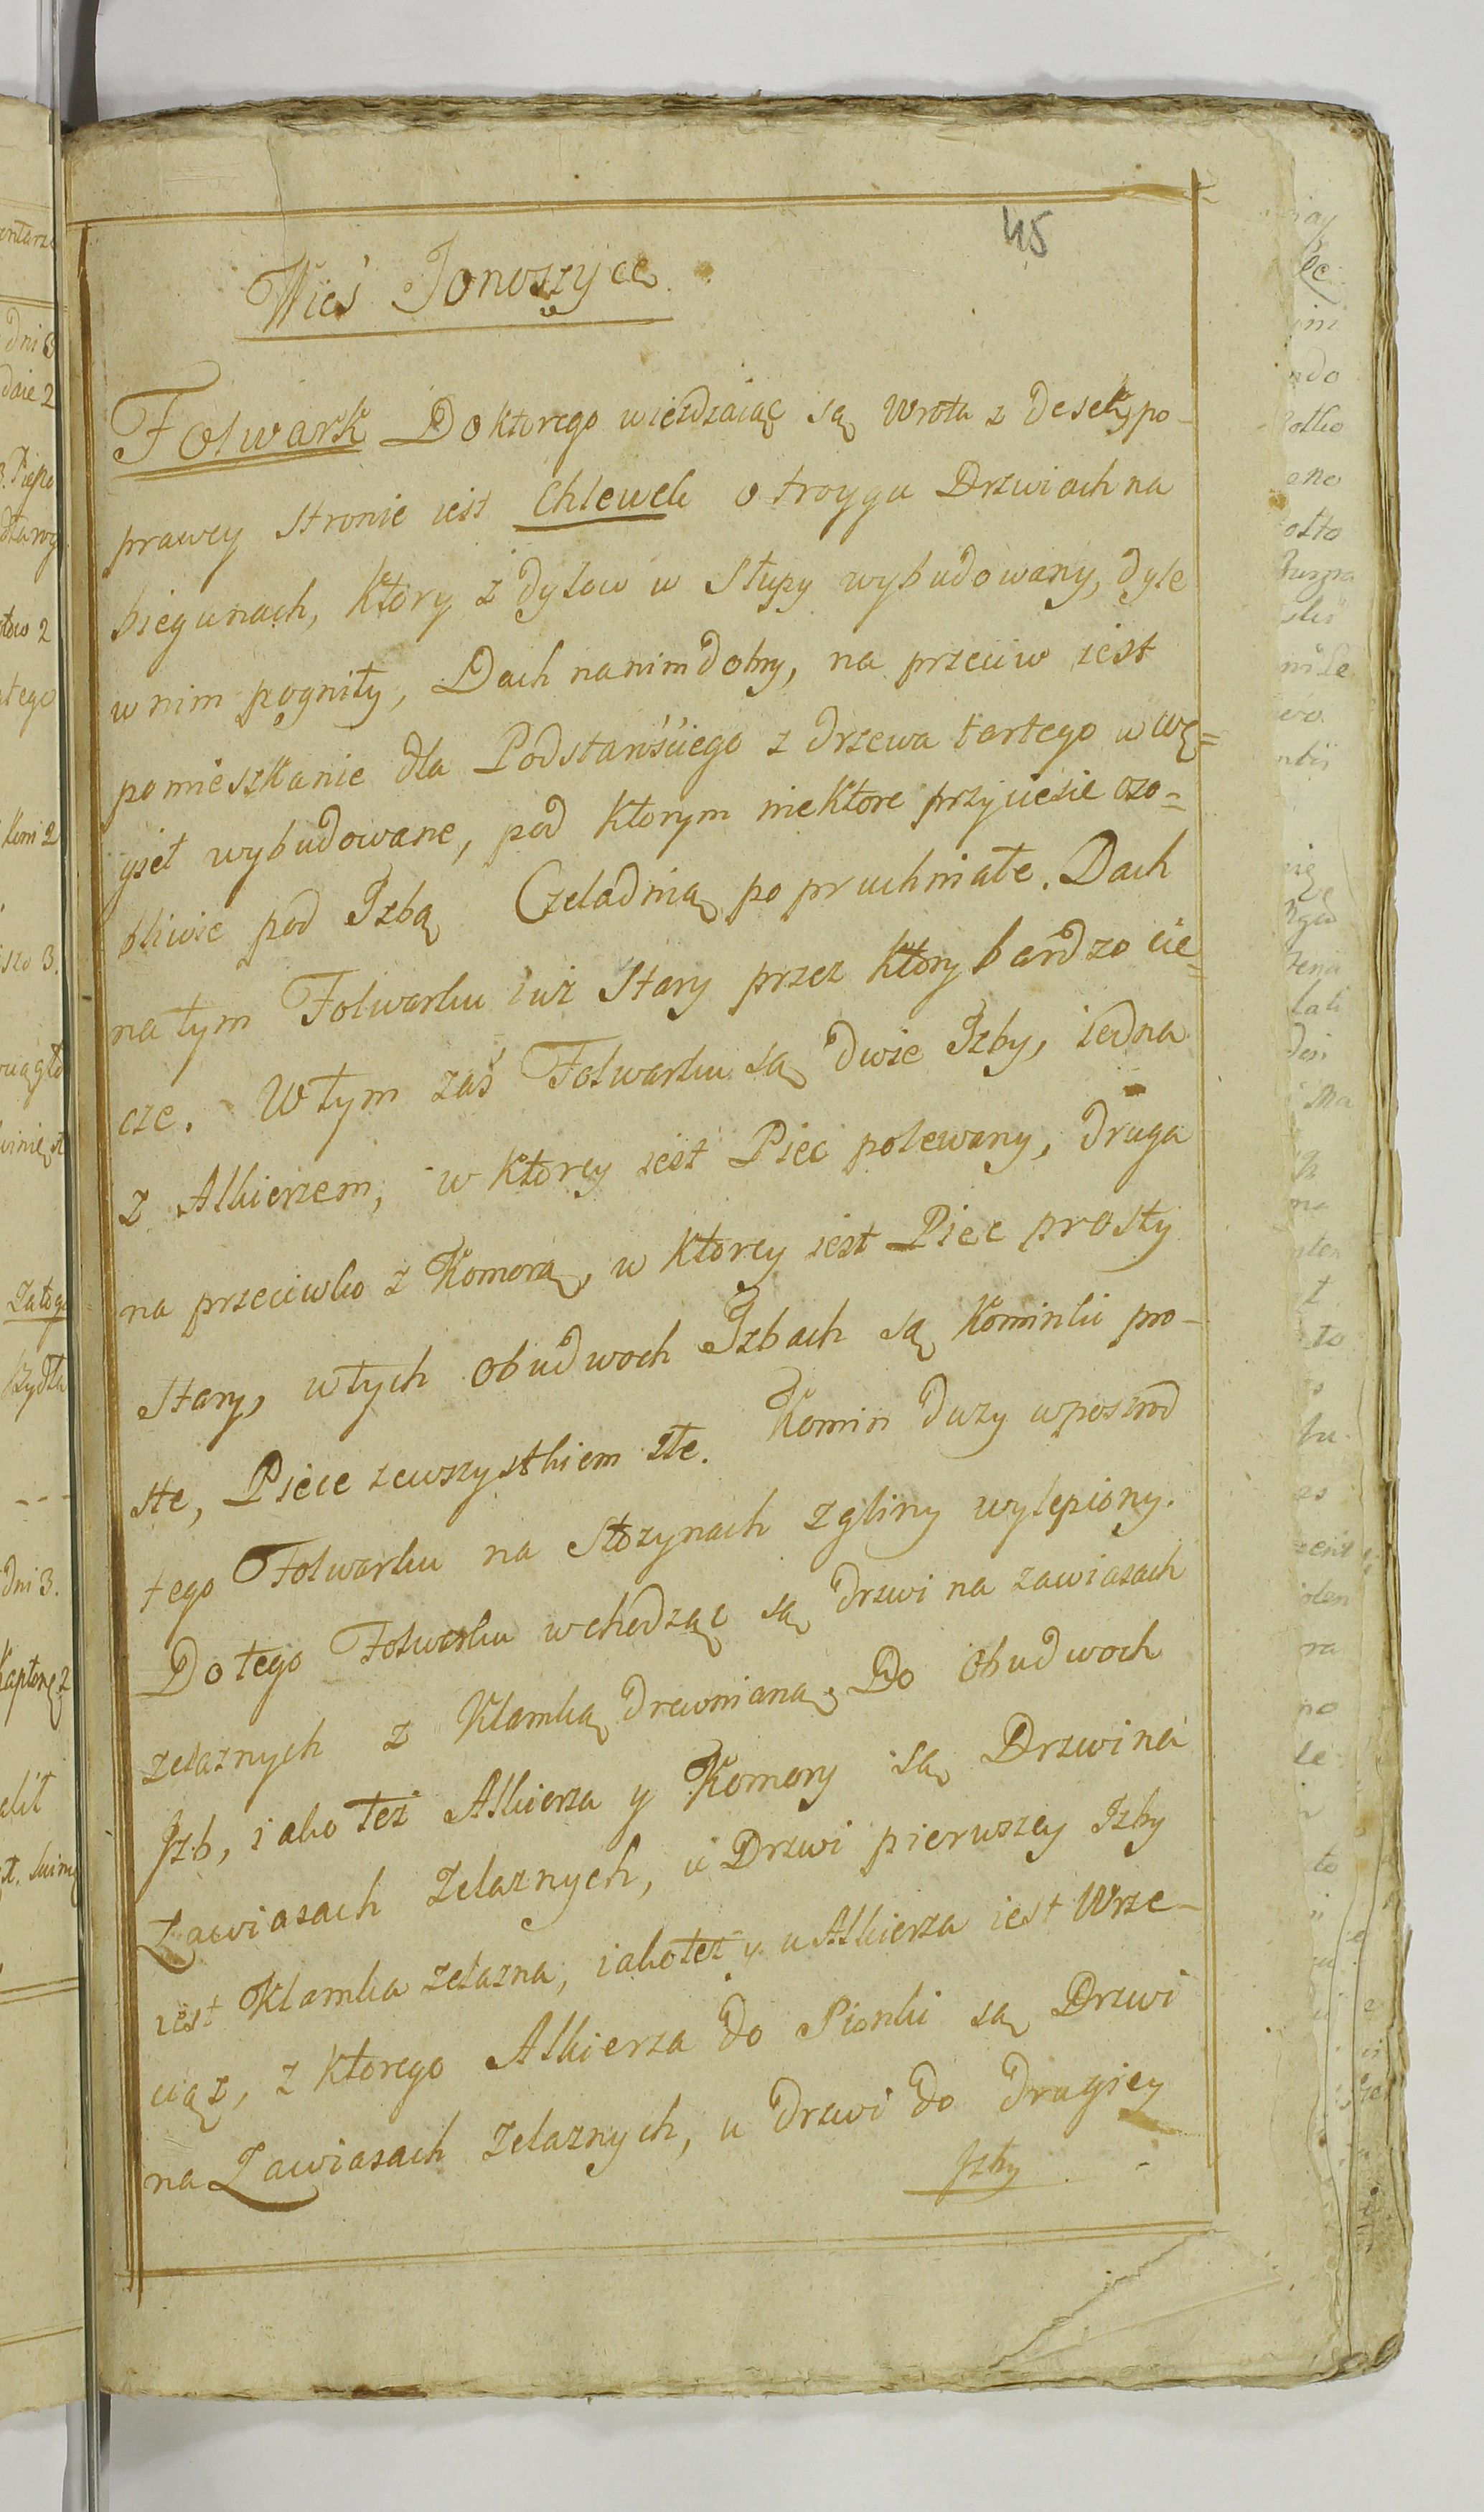 45
Wieś Jonoszyce
Folwark Do ktorego wieżdzaiąc są Wrota z Desek, po
prawey stronie iest Chlewek o troygu Drzwiach na
biegunach, ktory z dylow w Słupy wybudowany, dyle
w nim pogniły, Dach na nim dobry, na przeciw iest
pomieszkanie dla Podstarościego z drzewa tartego w wę=
gieł wybudowane, pod ktorym niektore przyciesie oso=
bliwie pod Izbą Czeladnią popruchniałe. Dach
na tym Folwarku iuż Stary przez ktory bardzo cie=
cze. W tym zaś Folwarku są dwie Izby, iedna
z Alkierzem, w ktorey iest Piec polewany, druga
na przeciwko z Komorą, w ktorey iest Piec prosty
stary, w tych obudwoch Izbach są Kominki pro-
ste, Piece zewszystkiem złe. Komin duzy wposrod
tego Folwarku na Słozynach z gliny wylepiony.
Do tego Folwarku wchodząc są drzwi na zawiasach
zelaznych z Klamką drewnianą, Do obudwoch
Izb, iako też Alkierza y Komory są Drzwi na
Zawiasach Zelaznych, u Drzwi pierwszey Izby
iest Klamka zelazna, iako też y u Alkierza iest Wrze-
ciąz, z ktorego Alkierza do Pionki są Drzwi
na Zawiasach zelaznych, u drzwi do drugiey
Izby